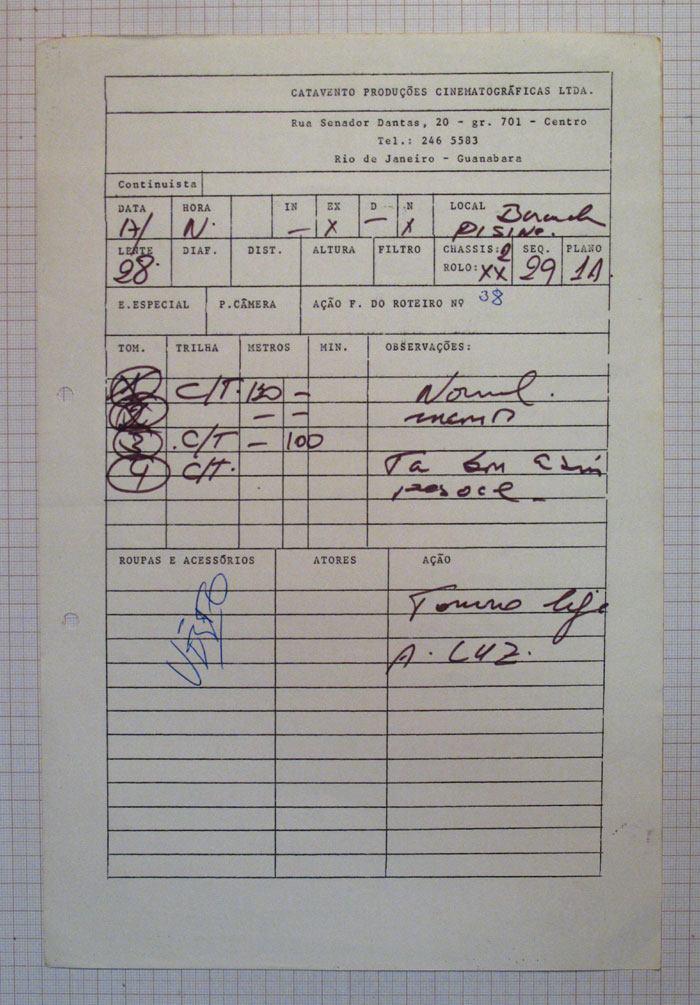 CATAVENTO PRODUÇÕES CINEMATOGRÁFICAS LTDA.
Rua Senador Dantas, 20 - gr. 701 - Centro
Tel.: 246 5583
Rio de Janeiro - Guanabara
Continuista
DATA HORA IN EX D N LOCAL
17/ N. — X — X
LENTE DIAF. DIST. ALTURA FILTRO CHASSIS: 2 SEQ. PLANO
28. ROLO: XX 29 1A
E.ESPECIAL P.CÂMERA AÇÃO F. DO ROTEIRO Nº 38
TOM. TRILHA METROS MIN. OBSERVAÇÕES:
C/T. 130 — Normal.
2 — —
3 .C/T — 100
4 C/T. Ta
ROUPAS E ACESSÓRIOS ATORES AÇÃO
VISTO
A. LUZ.